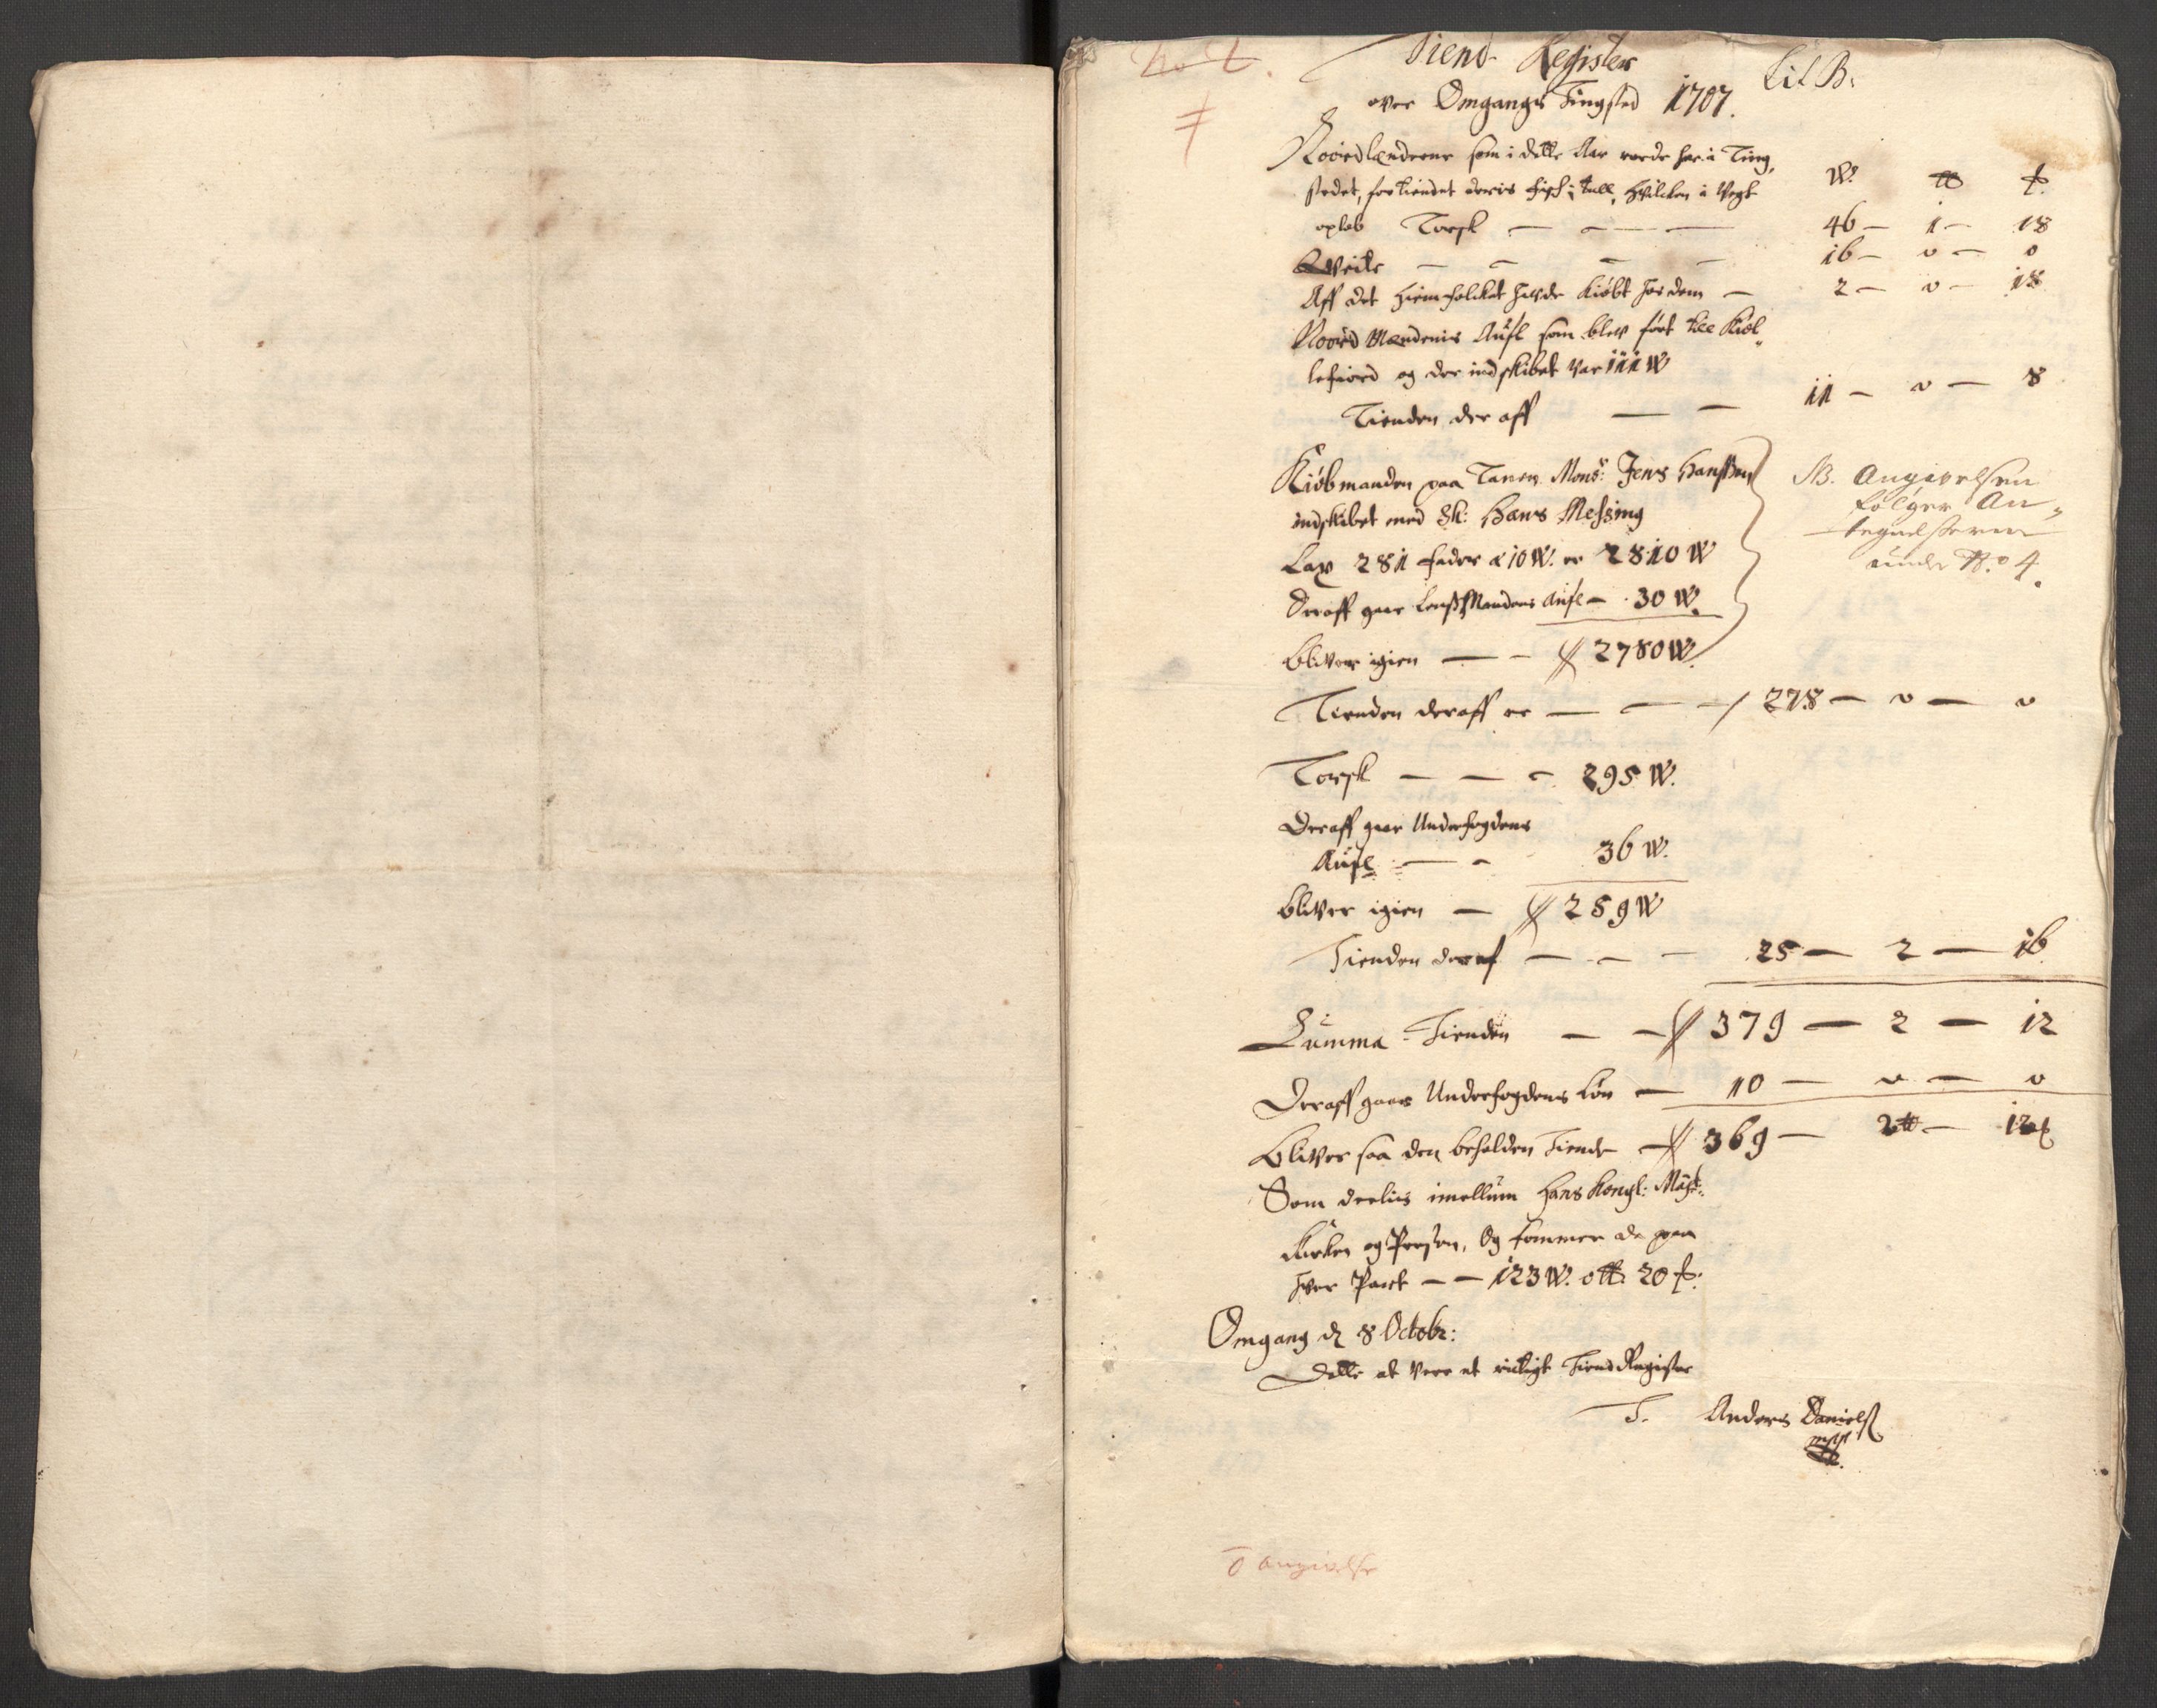 Tiend Register Lit B:
over Omgangs Tingsted 1707.
Noordlænderne som i dette Aar roede her i Ting,
stedet, fortiendet deris fisch i tall, hvilcken i Vegt W. ℔
opløb Torsk — — — 46 — 1 — 18
Qveite — — — — 16 — 0 — 0
Aff det hiemfolcket hafde kiøbt hos dem — 2 — 0 — 18
Noord Mændenis Aufl som blev ført till Kiøl„
lefiord og der indskibet var 111 W
Tienden der aff — — 11 — 0 — 8
Kiøbmanden paa Tanen Monsr: Jens Hanssen
indskibet med Sk: Hans Messing
Lax 281 fader a 10 W. er 2810 W
Deraff gaar Lensmandens Aufl — 30 W.
bliver igien — — 2780 W.
NB. Angivelsen
følger An„
tegnelserne
under No 4.
Tienden deraff er — — — 278 — 0 — 0
Torsk — — — 295 W.
Deraff gaar Underfogdens
Aufl — — 36 W.
bliver igien — 259 W
Tienden deraf — — — 25 — 2 — 16
Summa Tienden — — 379 — 2 — 12
Deraff gaar Underfogdens Løn — 10 — 0 — 0
bliver saa den beholden Tiende — 369 — 2 ℔ — 12
Som deelis imellum Hans Kongl: Mayt:
Kirken og Presten, Og kommer da paa
hver Part — — 123 W. 0 ℔. 20
Omgang d 8 Octobr:
Dette at være et rictigt Tiend Register
T. Anders Daniels
mpp
angivelse